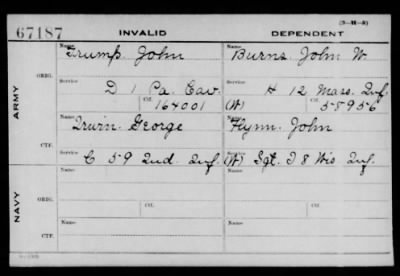 (3-H-8)
67187 INVALID DEPENDENT
Name Trump, John Name Burns, John W.
ORIG. Service D 1 Pa. Cav. Service H 12 Mass. Inf.
Ctf. 164001 (W) Ctf. 58956
ARMY
Name Irwin, George Name Flynn, John
CTF. Service C 59 Ind. Inf. Service (W) Sgt. I 8 Wis. Inf.
NAVY
Name Name
ORIG. Ctf. Ctf.
Name Name
CTF.